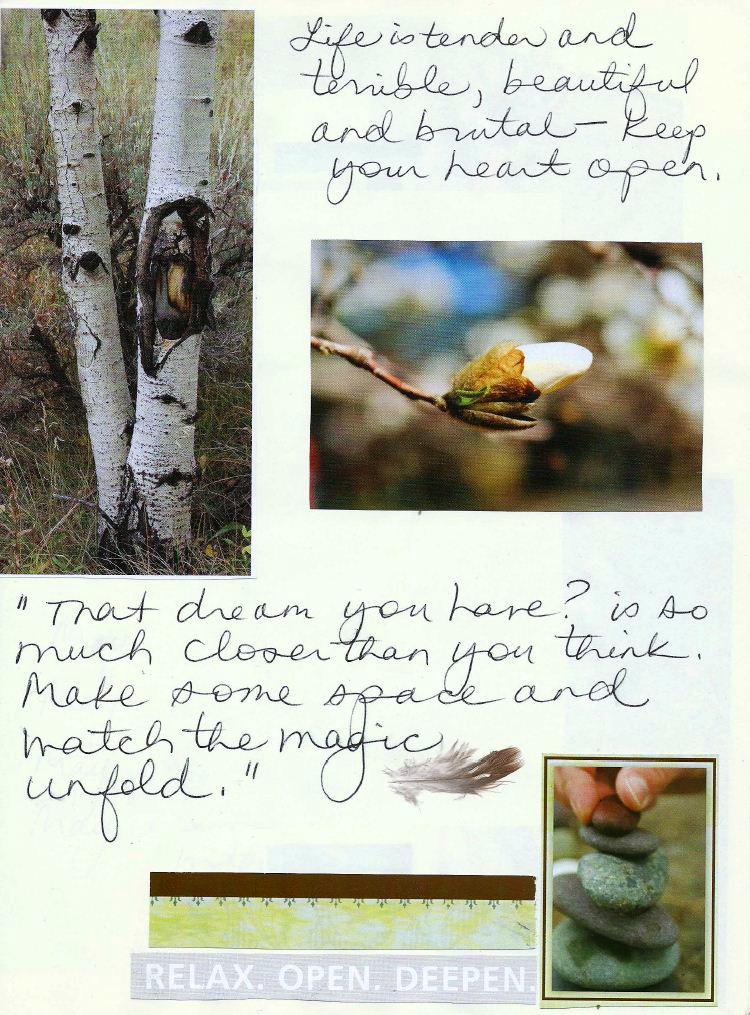 Life is tender and
terrible, beautiful
and brutal – keep
your heart open.
"That dream you have? is so
much closer than you think.
Make some space and
watch the magic
unfold."
RELAX. OPEN. DEEPEN.